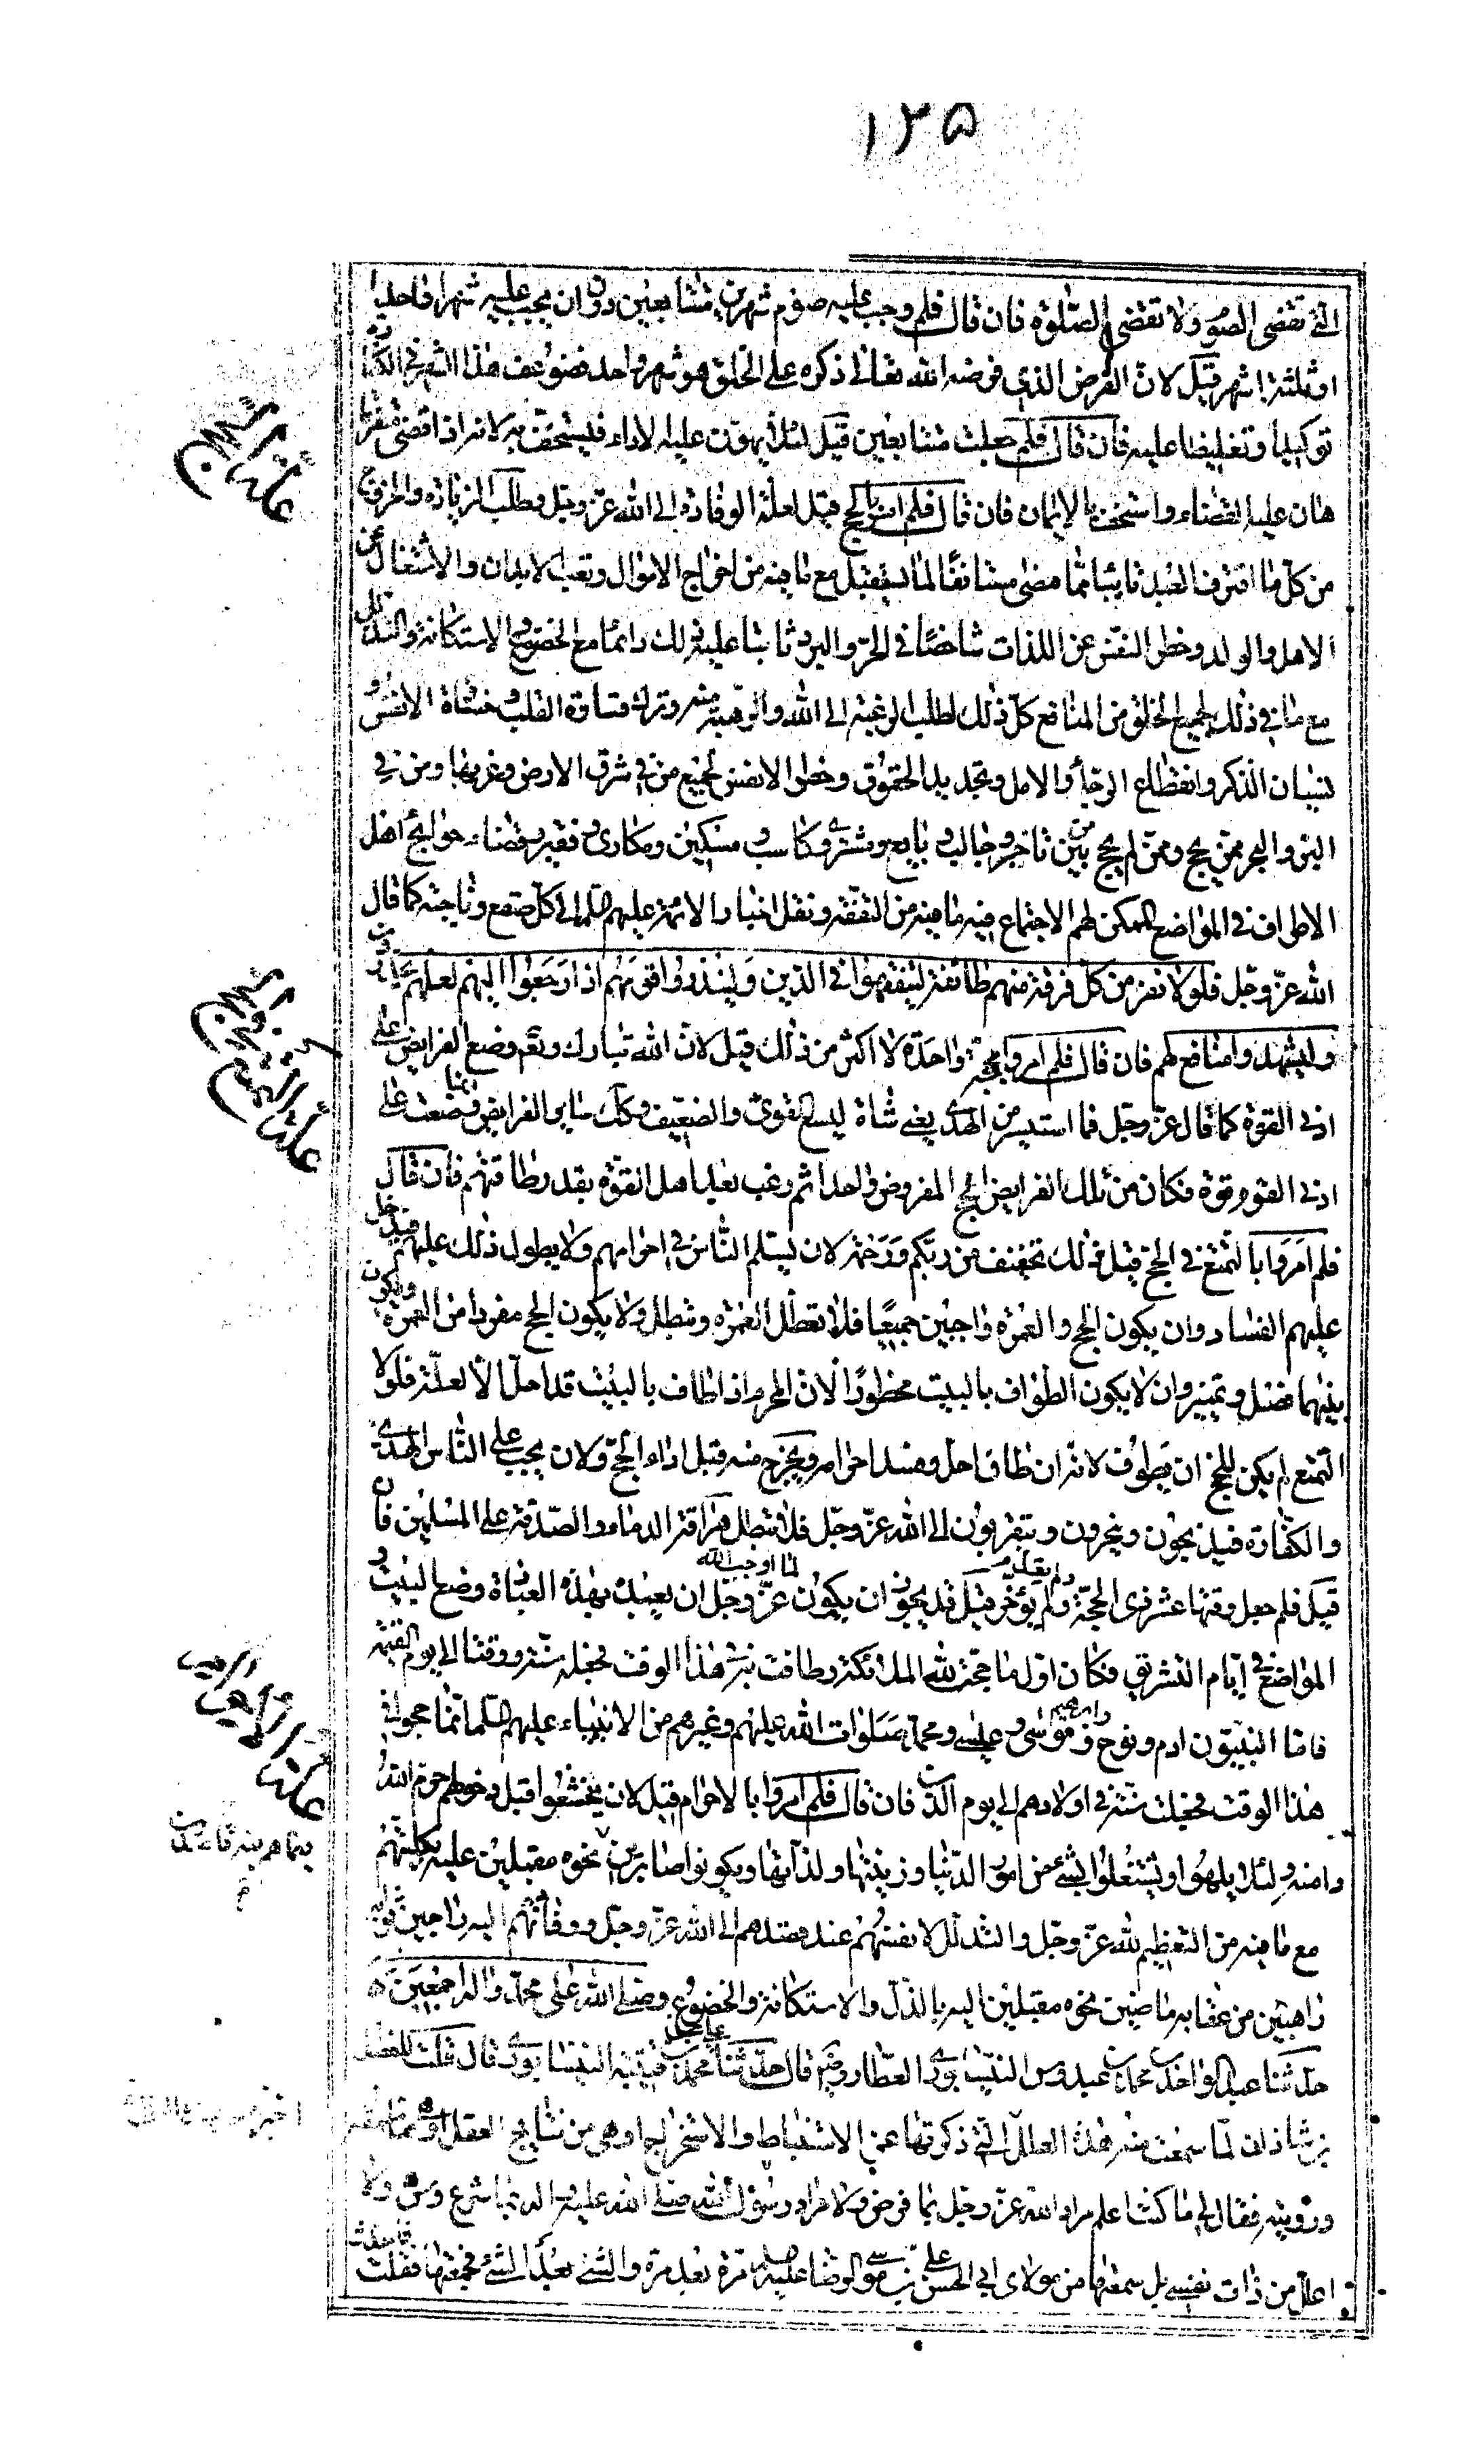 ١٢۵
التي تقضى الصوم ولا تقضى الصلوة فان قال فلم وجب عليه صوم شهرين متتابعين دون ان يجب عليه شهرا واحدا
او ثلثة اشهر قيل لان الفرض الذي فرضه الله تعالى ذكره على الخلق هو شهر واحد فضوعف هذا الشهر في الكفارة
توكيدا وتغليظا عليه فان قال فلم جعلت متتابعين قيل لئلا يهون عليه الاداء فيستخف به لانه اذا قضى متفرقا
هان عليه القضاء واستخف بالايمان فان قال فلم امر بالحج قيل لعلة الوفادة الى الله عز وجل وطلب الزيادة والخروج
من كل ما اقترف العبد تائبا مما مضى مستانفا لما يستقبل مع ما فيه من اخراج الاموال وتعب الابدان والاشتغال عن
الاهل والولد وحظر النفس عن اللذات شاخصا في الحر والبرد ثابتا عليه ذلك دائما مع الخضوع والاستكانة والتذلل
مع ما في ذلك لجميع الخلق من المنافع كل ذلك لطلب الرغبة الى الله والرهبة منه وترك قساوة القلب وخساة الانفس و
نسيان الذكر وانقطاع الرجاء والامل وتجديد الحقوق وحظر الانفس لجميع من في شرق الارض وغربها ومن في
البر والبحر ممن يحج وممن لم يحج من بين تاجر وجالب وبايع ومشتري وكاسب ومسكين ومكاري وفقير وقضاء حوايج اهل
الاطراف في المواضع الممكن لهم الاجتماع فيه ما فيه من التفقه ونقل اخبار الائمة عليهم السلم الى كل صقع وناحية كما قال
الله عز وجل فلولا نفر من كل فرقة منهم طائفة ليتفقهوا في الدين ولينذروا قومهم اذا رجعوا اليهم لعلهم يحذرون
وليشهدوا منافع لهم فان قال فلم امروا بحجة واحدة لا اكثر من ذلك قيل لان الله تبارك وتعم وضع الفرايض على
ادنى القوة كما قال عز وجل فما استيسر من الهدي يعني شاة ليسع القوي والضعيف وكك ساير الفرايض انما وضعت على
ادنى القوم قوة فكان من تلك الفرايض الحج المفروض واحدا ثم رغب بعد اهل القوة بقدر طاقتهم فان قال
فلم امروا بالتمتع في الحج قيل ذلك تخفيف من ربكم ورحمة لان يسلم الناس في احرامهم ولا يطول ذلك عليهم فيدخل
عليهم الفساد وان يكون الحج والعمرة واجبين جميعا فلا تعطل العمرة وتبطل ولا يكون الحج مفردا من العمرة ويكون
بينهما فصل وتمييز وان لا يكون الطواف بالبيت محظورا لان المحرم اذا طاف بالبيت قد احل الا لعلة فلولا
التمتع لم يكن للحاج ان يطوف لانه ان طاف احل وفسد احرامه ويخرج منه قبل اداء الحج ولان يجب على الناس الهدي
والكفارة فيذبحون وينحرون ويتقربون الى الله عز وجل فلا تبطل هراقة الدماء والصدقة على المسلمين فان
قيل فلم جعل وقتها عشر ذي الحجة ولم يقدم ولم يؤخر قيل قد يجوز ان يكون لما اوجب الله عز وجل ان يعبد بهذه العبادة وضع البيت و
المواضع في ايام التشريق فكان اول ما حجت لله الملائكة وطافت به في هذا الوقت فجعله سنة ووقتا الى يوم القيمة
فاما النبيون ادم ونوح وابرهيم وموسى وعيسى ومحمد صلوات الله عليهم وغيرهم من الانبياء عليهم السلم انما حجوا في
هذا الوقت فجعلت سنة في اولادهم الى يوم الدين فان قال فلم امروا بالاحرام قيل لان يتخشعوا قبل دخولهم حرم الله
وامنه ولئلا يلهوا ويشتغلوا بشيء من امور الدنيا وزينتها ولذاتها ويكونوا صابرين نحوه مقبلين عليه بكليتهم
مع ما فيه من التعظيم لله عز وجل والتذلل لانفسهم عند قصدهم الى الله عز وجل ووفادتهم اليه راجين ثوابه
راهبين من عقابه ماضين نحوه مقبلين اليه بالذل والاستكانة والخضوع وصلى الله على محمد واله اجمعين
حدثنا عبد الواحد بن محمد بن عبدوس النيسابوري العطار قال حدثنا علي بن محمد بن قتيبة النيسابوري قال قلت للفضل
بن شاذان لما سمعت منه هذه العلل التي ذكرتها عن الاستنباط والاستخراج او هي من نتايج العقل او مما سمعته
ورويته فقال لي ما كنت اعلم مراد الله عز وجل بما فرض ولا مراد رسول الله صلى الله عليه واله بما شرع وسن ولا
اعلل من ذات نفسي بل سمعتها من مولاي ابي الحسن علي بن موسى الرضا عليه السلم مرة بعد مرة والشيء بعد الشيء فجمعتها فقلت
علة الحج
علة التمتع
علة الاحرام
بما هم فيه قاصدين